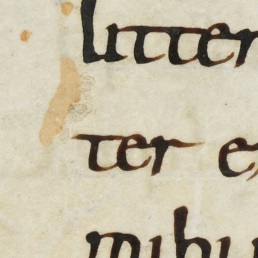 litter
ter e
mibu